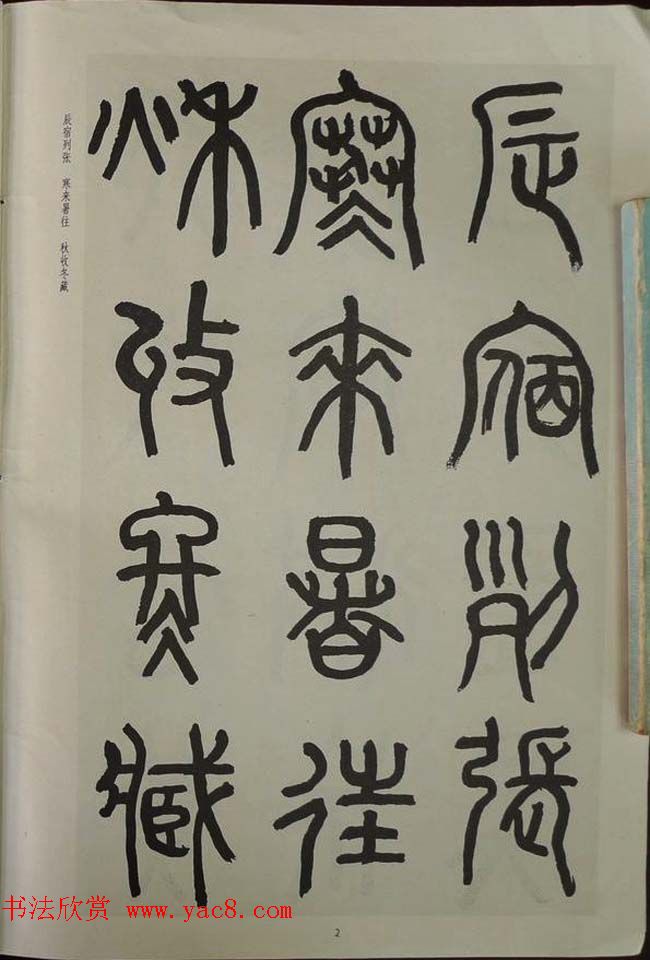 辰宿列张
寒来暑往
秋收冬藏
辰宿列张 寒来暑往 秋收冬藏
书法欣赏 www.yac8.com
2